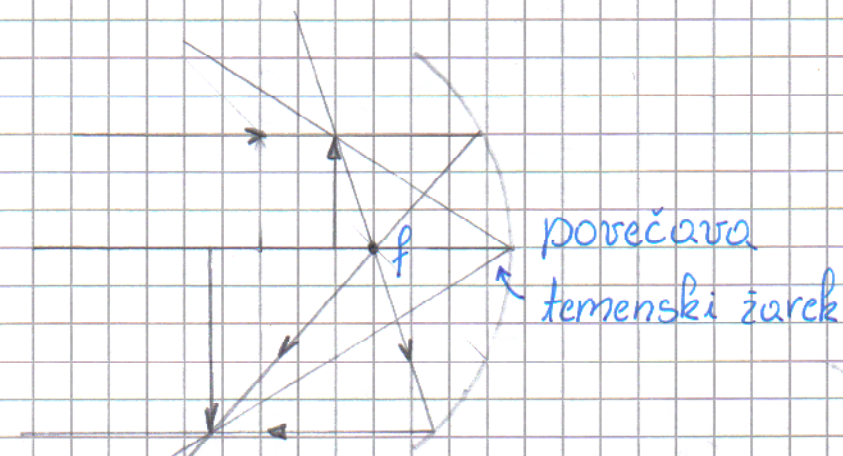 f
povečava
temenski žarek